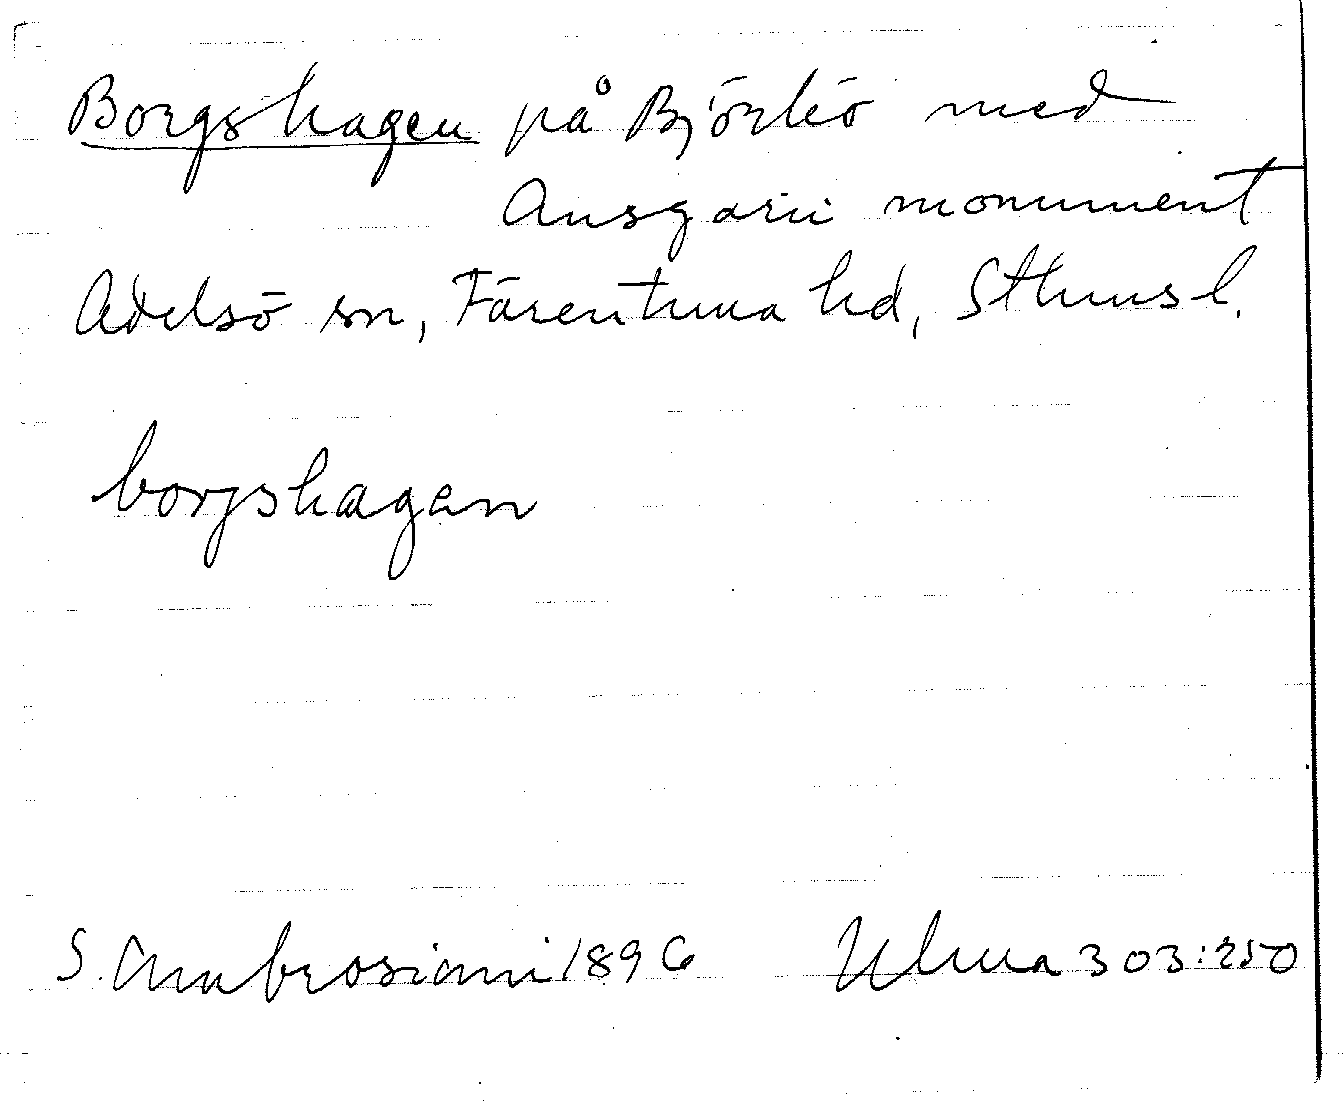 Borgshagen på Björkö med
Ansgarii monument
Adelsö sn, Färentuna hd, Sthms l.
borgshagen
S. Ambrosiani 1896 Ulma 303:250